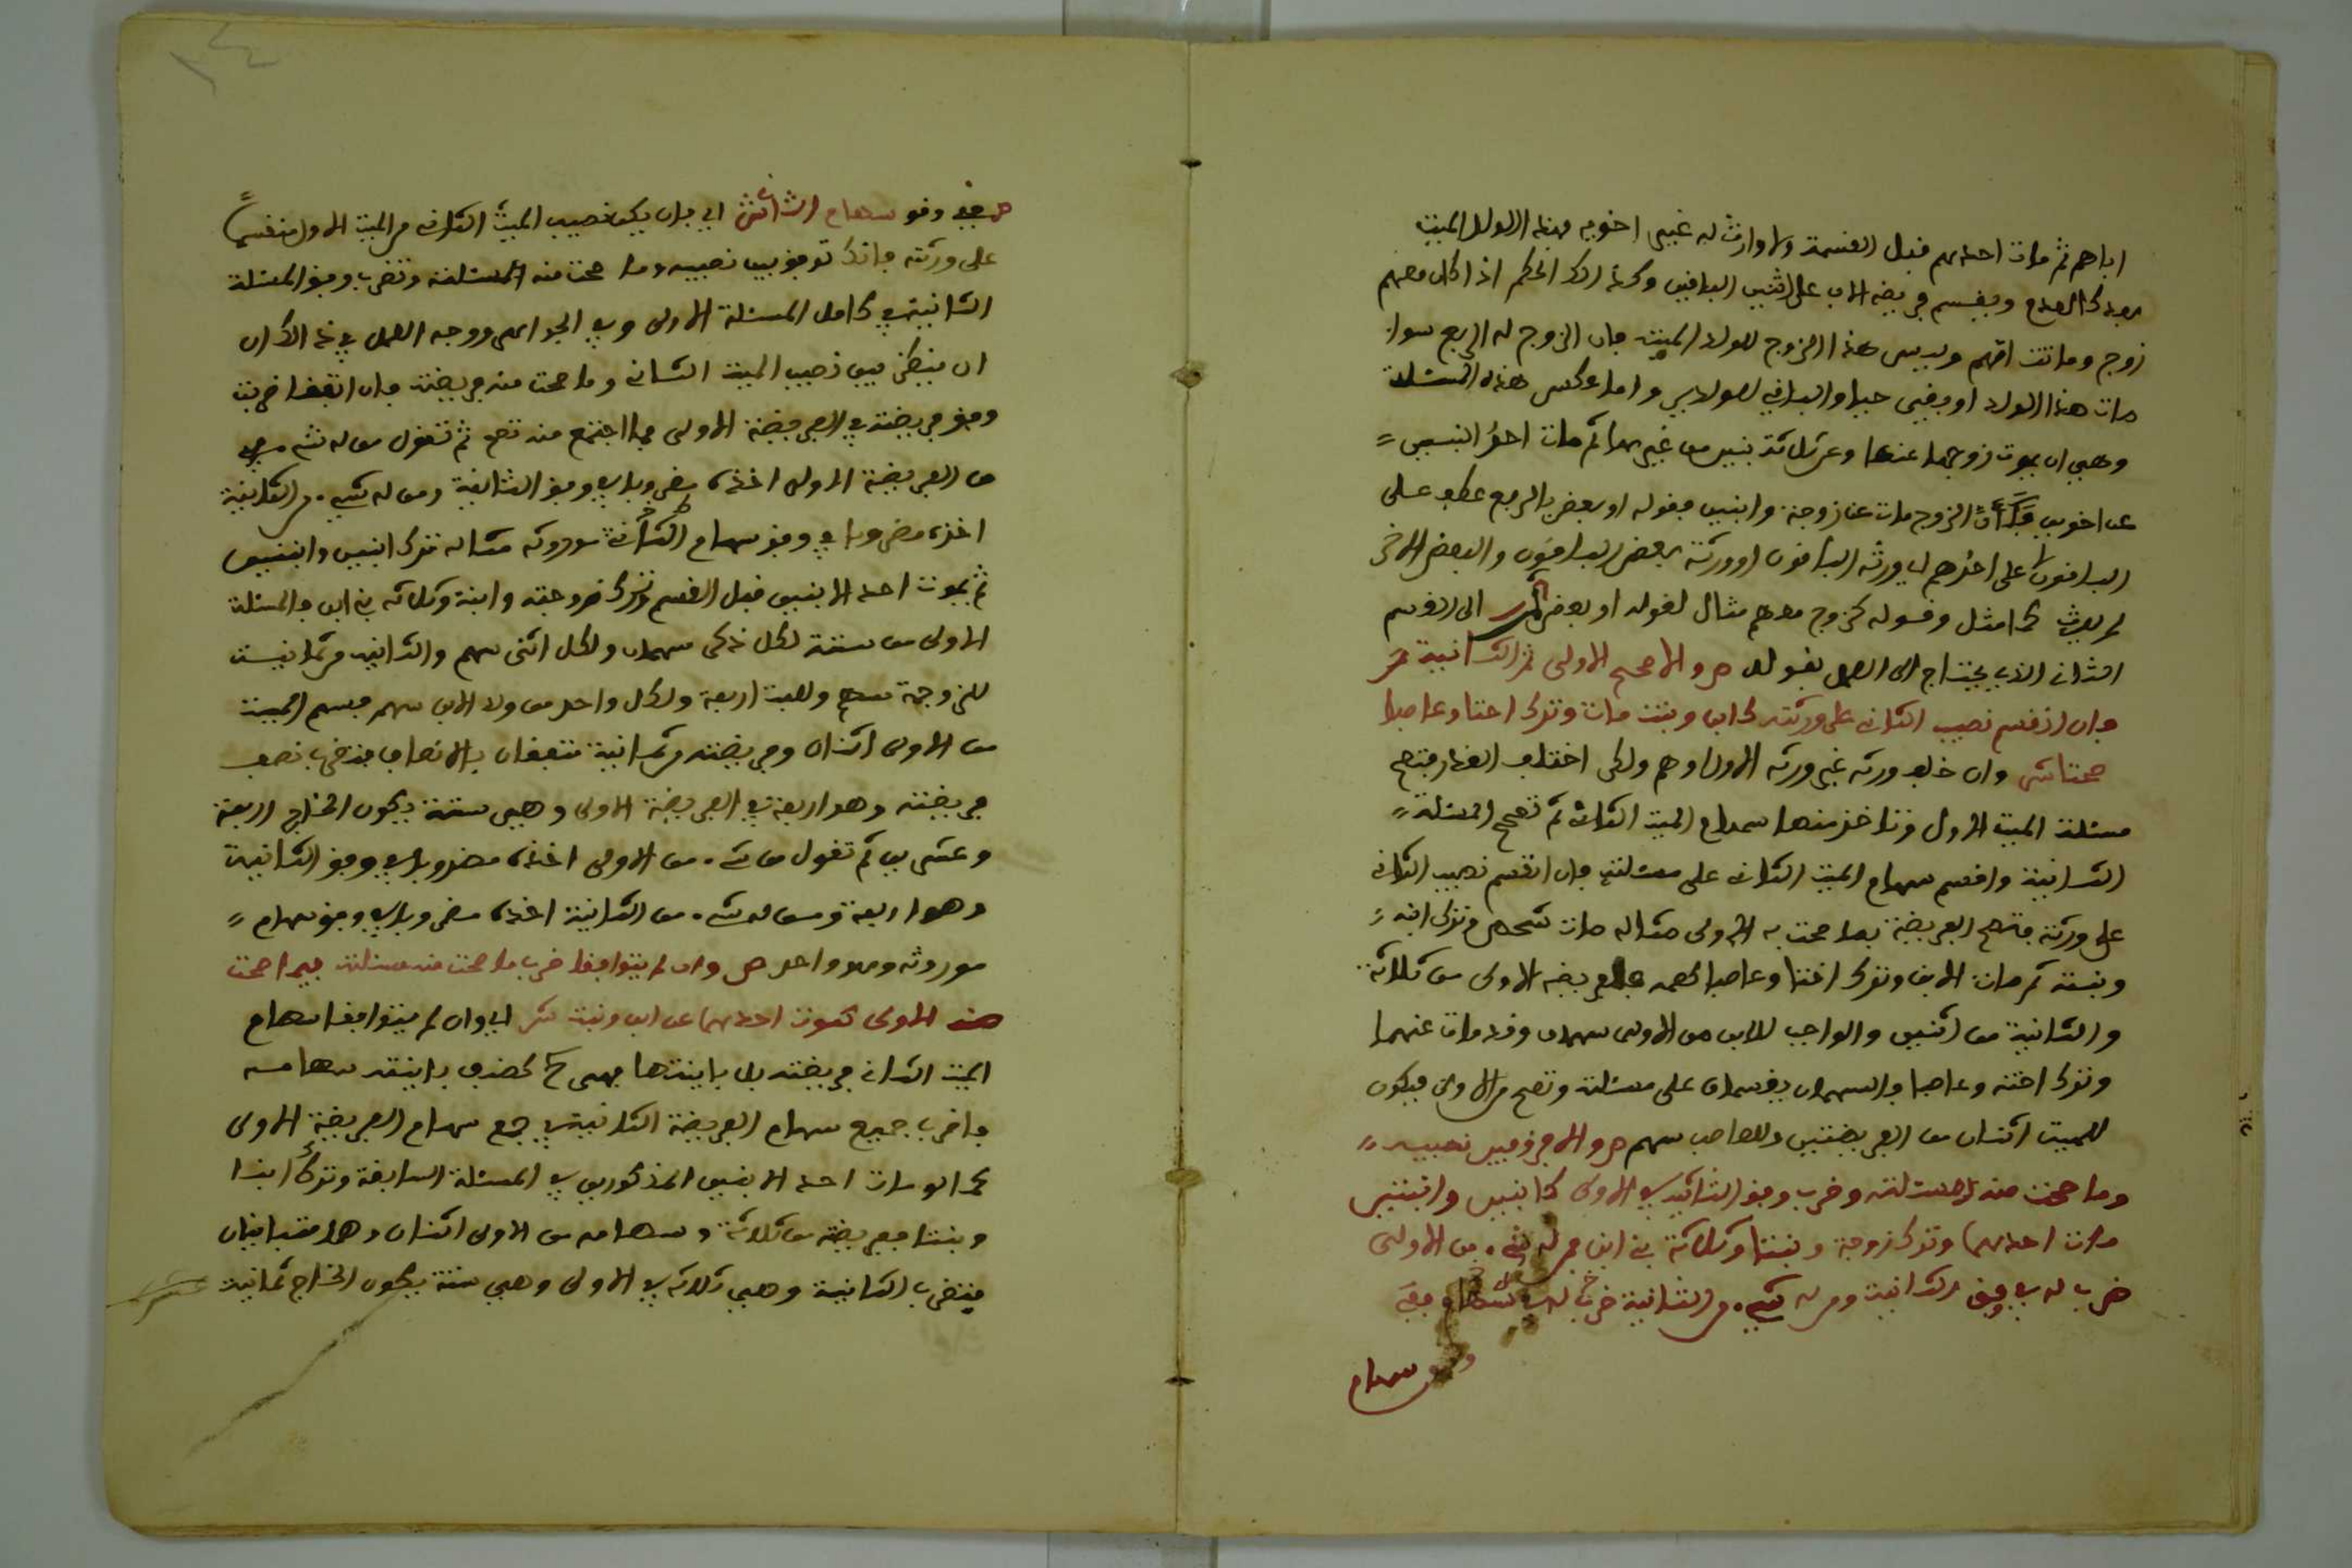 اباهم ثم مات احدهم قبل القسمة ولا وارث له غير اخويه فهذا الولد الميت
كالعدم ويقسم فريضة الاب على الاثنين الباقيين وكذلك الحكم اذا كان معهم
زوج وماتت امهم وليس هذا الزوج للولد الميت فان الزوج له الربع سواء
مات هذا الولد او بقي حيا والباقي للولدين واما عكس هذه المسئلة
وهي ان يموت زوجها عنها وعن ثلاثة بنين من غيرها ثم مات احد البنين
عن اخويه فكأن الزوج مات عن زوجة وابنين فقوله او بعض بالرفع عطف على
الباقون اي على احدهم اي ورثه الباقون او ورثه بعض الباقون والبعض الاخر
لم يرث كما مثل وقوله كزوج معهم مثال لقوله او بعض الى القسم
الثاني الذي يحتاج الى العمل بقوله ص والا صحح الاولى ثم الثانية
فان انقسم نصيب الثاني على ورثته كابن وبنت مات وترك اختا وعاصبا
صحتا ش وان خلف ورثة غير ورثة الاول او هم ولكن اختلف القدر فتصحح
مسئلة الميت الاول وتاخذ منها سهام الميت الثاني ثم تصحح المسئلة
الثانية واقسم سهام الميت الثاني على مسئلته فان انقسم نصيب الثاني
على ورثته فتصح الفريضة بما صحت به الاولى مثاله مات شخص وترك ابنه
وبنته ثم مات الابن وترك اختا وعاصبا كعمه فالفريضة الاولى من ثلاثة
والثانية من اثنين والواجب للابن من الاولى سهمان وقد مات عنهما
وترك اخته وعاصبا والسهمان يقسمان على مسئلته وتصح من الاولى فيكون
للميت اثنان من الفريضتين وللعاصب سهم ص والا وفق بين نصيبه
وما صحت منه مسئلته وضرب وفق الثانية في الاولى كابنين وابنتين
مات احدهما وترك زوجة وبنتا وثلاثة بني ابن فمن له شيء من الاولى
ضرب له في وفق الثانية ومن له شيء من الثانية ضرب له في
وفق سهام
وفق سهام الثاني ش اي بان يكون نصيب الميت الثاني من الميت الاول منقسما
على ورثته فانك توفق بين نصيبه وما صحت منه المسئلة وتضرب وفق المسئلة
الثانية في كامل المسئلة الاولى ووجه العمل في ذلك ان
ان ينظر بين نصيب الميت الثاني وما صحت منه فريضته فان اتفقا ضربت
وفق فريضته في الفريضة الاولى فما اجتمع منه تصح ثم تقول من له شيء
من الفريضة الاولى اخذه مضروبا في وفق الثانية ومن له شيء من الثانية
اخذه مضروبا في وفق سهام الثاني موروثه مثاله ترك ابنين وابنتين
ثم يموت احد الابنين قبل القسم وترك زوجته وابنة وثلاثة بني ابن والمسئلة
الاولى من ستة لكل ذكر سهمان ولكل انثى سهم والثانية من ثمانية
للزوجة سهم وللبنت اربعة ولكل واحد من ولد الابن سهم فسهم الميت
من الاولى اثنان وفريضته من ثمانية متفقان بالانصاف فتضرب نصف
فريضته وهو اربعة في الفريضة الاولى وهي ستة يكون الخارج اربعة
وعشرين ثم تقول من له شيء من الاولى اخذه مضروبا في وفق الثانية
وهو اربعة ومن له شيء من الثانية اخذه مضروبا في وفق سهام
موروثه وهو واحد ص وان لم يتوافقا ضرب ما صحت منه مسئلته فيما صحت
منه الاولى كموت احدهما عن ابن وبنت ش اي وان لم يتوافقا سهام
الميت الثاني فريضته بل باينتها فهي كصنف باينته سهامه
فاضرب جميع سهام الفريضة الثانية في جميع سهام الفريضة الاولى
كما لو مات احد الابنين المذكورين في المسئلة السابقة وترك ابنا
وبنتا ففريضته من ثلاثة وسهامه من الاولى اثنان وهما متباينان
فتضرب الثانية وهي ثلاثة في الاولى وهي ستة يكون الخارج ثمانية
عشر